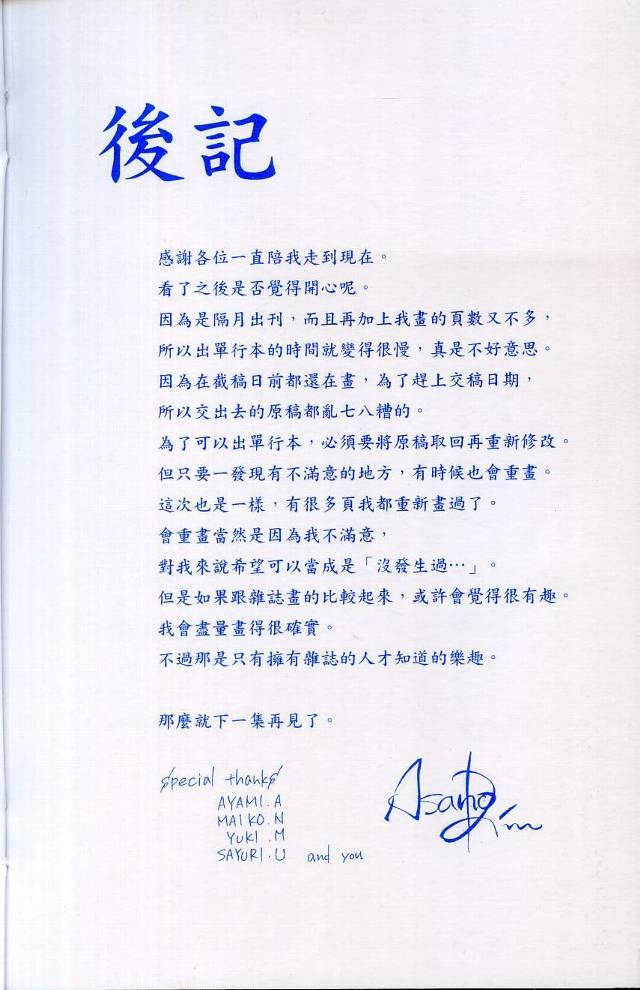 後記
感謝各位一直陪我走到現在。
看了之後是否覺得開心呢。
因為是隔月出刊，而且再加上我畫的頁數又不多，
所以出單行本的時間就變得很慢，真是不好意思。
因為在截稿日前都還在畫，為了趕上交稿日期，
所以交出去的原稿都亂七八糟的。
為了可以出單行本，必須要將原稿取回再重新修改。
但只要一發現有不滿意的地方，有時候也會重畫。
這次也是一樣，有很多頁我都重新畫過了。
會重畫當然是因為我不滿意，
對我來說希望可以當成是「沒發生過…」。
但是如果跟雜誌畫的比較起來，或許會覺得很有趣。
我會盡量畫得很確實。
不過那是只有擁有雜誌的人才知道的樂趣。
那麼就下一集再見了。
special thanks
AYAMI.A
MAIKO.N
YUKI.M
SAYURI.U and you
Asano Rin